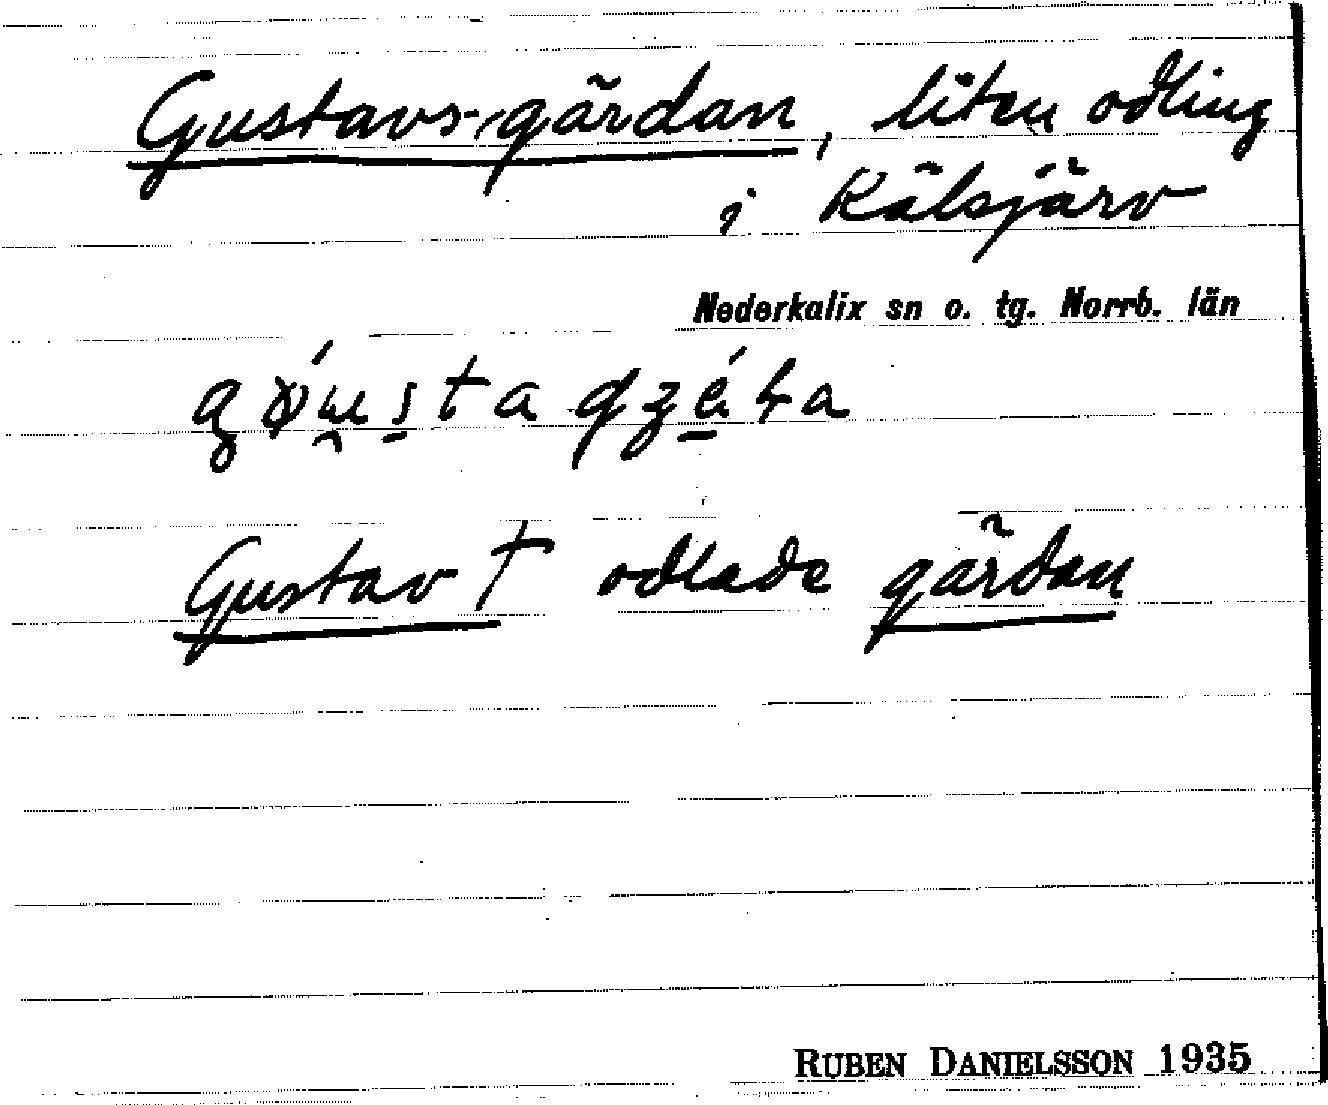 Gustavs-gärdan, liten odling
i Kälsjärv
Nederkalix sn o. tg. Norrb. län
Gustav † odlade gärdan
RUBEN DANIELSSON 1935